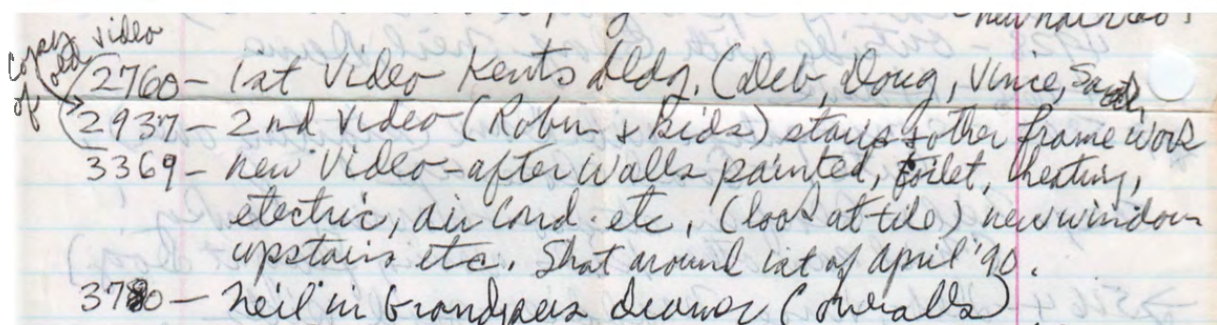 new hairdo!
Copy of old video
2760 - 1st Video Kents bldg. (Deb, Doug, Vince, Sarah
2937 - 2nd Video (Robin + Bids) stairs & other frame work
3369 - new Video - after walls painted, toilet, heating,
electric, air cond. etc. (look at tile) new window
upstairs etc. Shot around 1st of April '90.
3780 - Neil in Grandpas drawer (overalls)